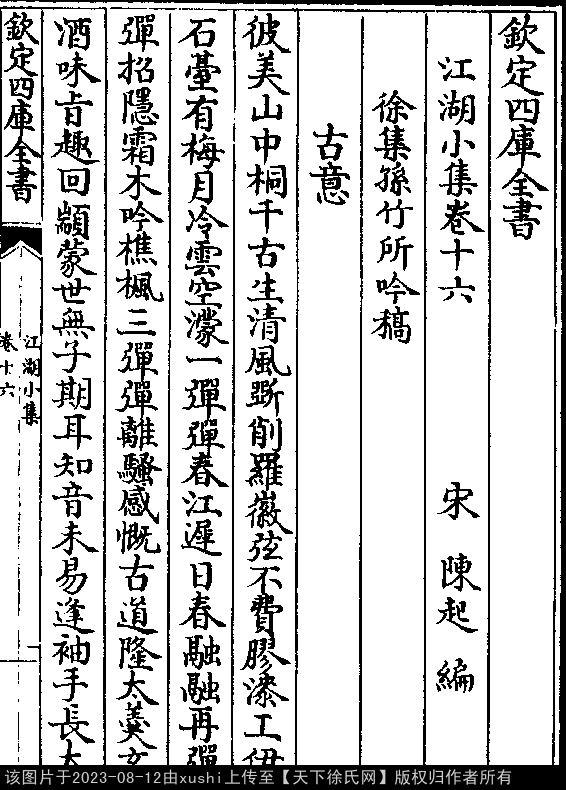 欽定四庫全書
江湖小集卷十六 宋 陳起 編
徐集孫竹所吟稿
古意
彼美山中桐千古生清風斲削羅徽弦不費膠漆工伊
石臺有梅月冷雲空濛一彈彈春江遲日春融融再彈
彈招隱霜木吟樵楓三彈彈離騷感慨古道隆太羹玄
酒味㫖趣回顓蒙世無子期耳知音未易逢袖手長太
欽定四庫全書
江湖小集
卷十六
该图片于2023-08-12由xushi上传至【天下徐氏网】版权归作者所有